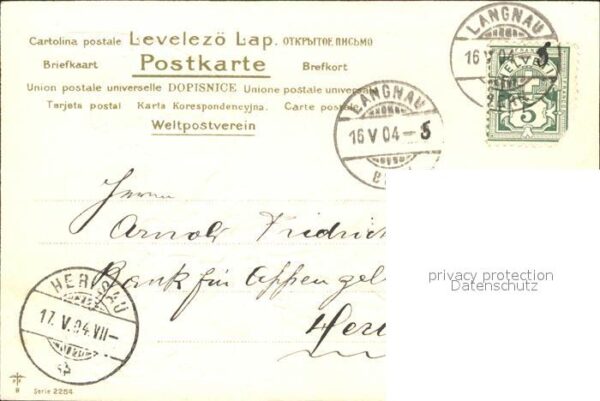 Cartolina postale Levelező Lap. ОТКРЫТОЕ ПИСЬМО
Briefkaart Postkarte Brefkort
Union postale universelle DOPISNICE Unione postale universale
Tarjeta postal Karta Korespondencyjna. Carte postale
Weltpostverein
LANGNAU
16 V 04 – 5
LANGNAU
16 V 04 5
HELVETIA
5
Herrn
Arnold Fridrich
Bank für Appenzell
HERISAU
17. V. 04. VII –
privacy protection
Datenschutz
Serie 2284